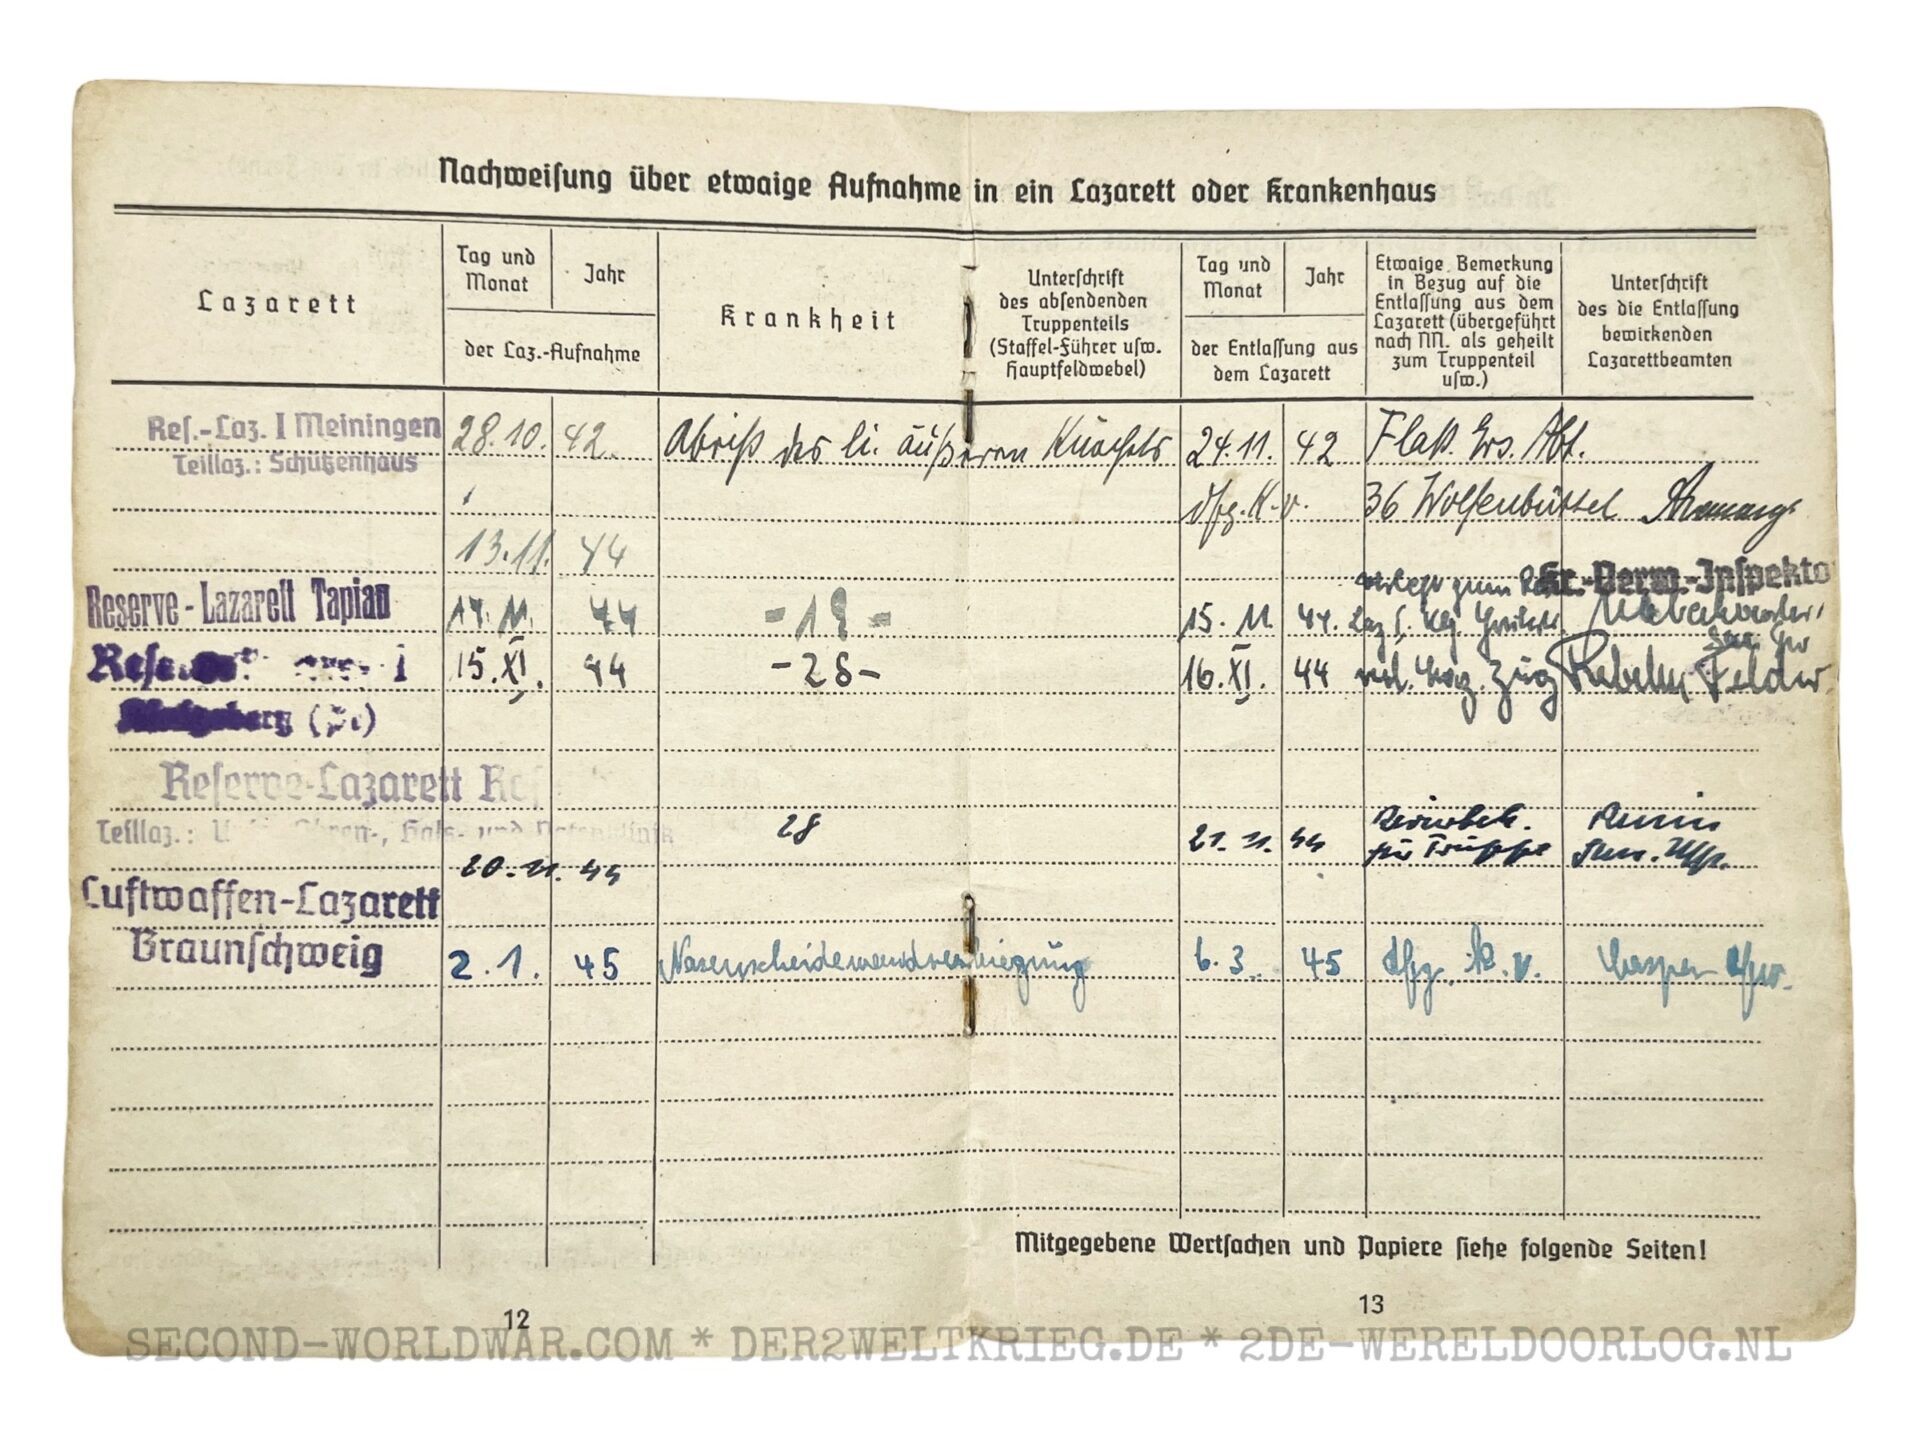 Nachweisung über etwaige Aufnahme in ein Lazarett oder Krankenhaus
Lazarett
Tag und Monat
Jahr
der Laz.-Aufnahme
Krankheit
Unterschrift
des absendenden
Truppenteils
(Staffel-Führer usw.
Hauptfeldwebel)
Tag und Monat
Jahr
der Entlassung aus
dem Lazarett
Etwaige Bemerkung
in Bezug auf die
Entlassung aus dem
Lazarett (übergeführt
nach NN. als geheilt
zum Truppenteil
usw.)
Unterschrift
des die Entlassung
bewirkenden
Lazarettbeamten
Res.-Laz. I Meiningen 28.10. 42. Abriß des li. äußeren Knöchels 24.11. 42 Flak. Ers. Abt.
Teillaz.: Schützenhaus
dfg. K.v. 36 Wolfenbüttel
13.11. 44
Reserve-Lazarett Tapiau 14.11. 44 15.11. 44.
15.XI. 44 -28- 16.XI. 44 Feldw.
Reserve-Lazarett
Teillaz.: Hals- und 28 21.11.44 für Truppe
20.11.44
Luftwaffen-Lazarett
Braunschweig 2.1. 45 Nasenscheidewandverbiegung 6.3. 45 dfg. k.v.
Mitgegebene Wertsachen und Papiere siehe folgende Seiten!
12
13
SECOND-WORLDWAR.COM * DER2WELTKRIEG.DE * 2DE-WERELDOORLOG.NL